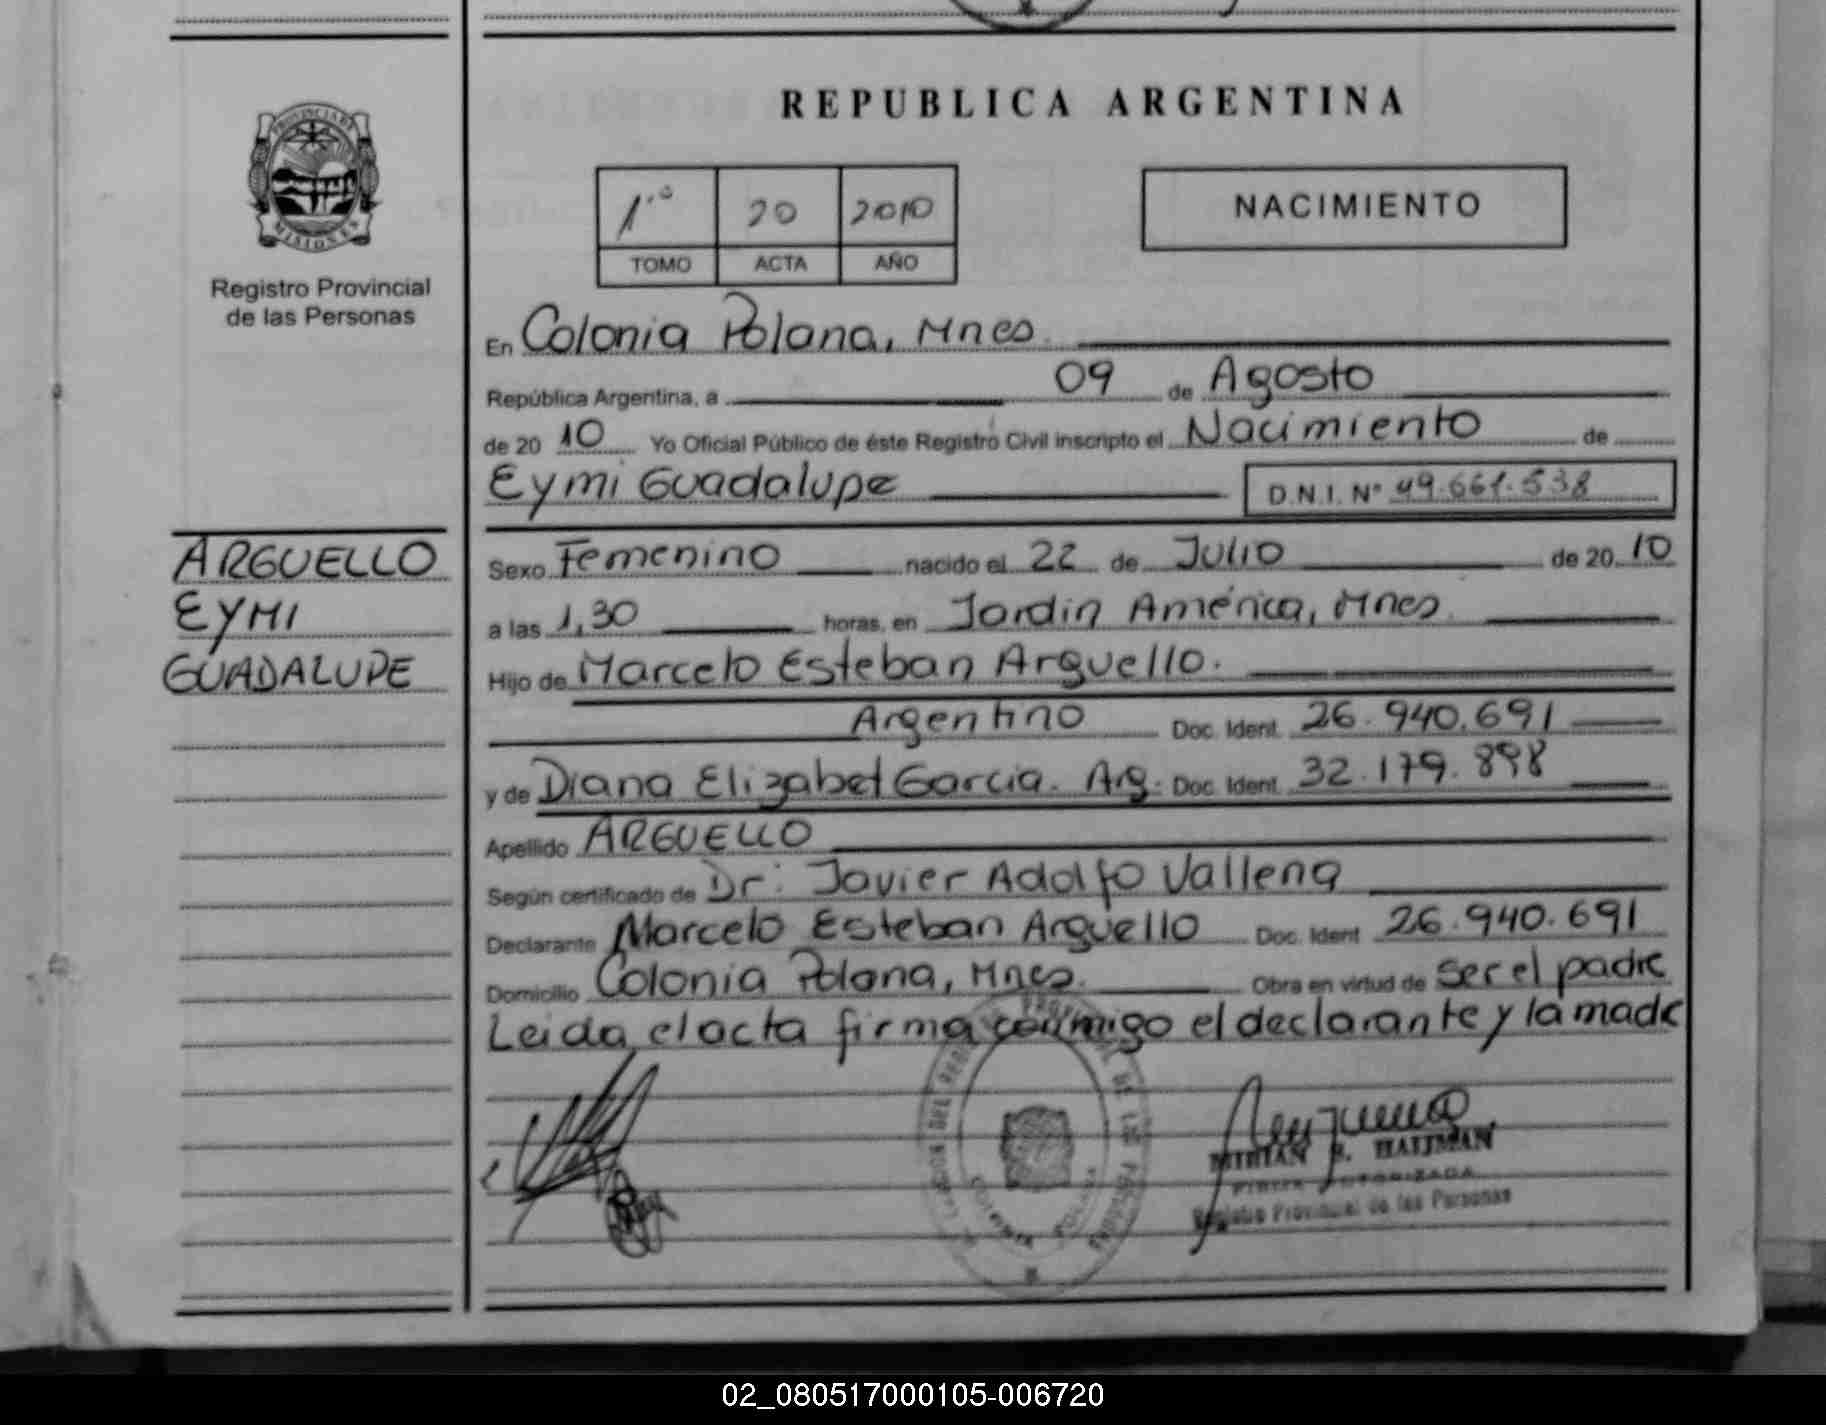 REPUBLICA ARGENTINA
PROVINCIA DE
MISIONES
Registro Provincial
de las Personas
1.º 20 2010
TOMO ACTA AÑO
NACIMIENTO
En Colonia Polana, Mnes.
República Argentina, a 09 de Agosto
de 20 10 Yo Oficial Público de éste Registro Civil inscripto el Nacimiento de
Eymi Guadalupe D.N.I. Nº 49.661.538
ARGUELLO
EYMI
GUADALUPE
Sexo Femenino nacido el 22 de Julio de 20 10
a las 1,30 horas, en Jardin América, Mnes.
Hijo de Marcelo Esteban Arguello.
Argentino Doc. Ident. 26.940.691
y de Diana Elizabet Garcia. Arg. Doc. Ident. 32.179.898
Apellido ARGUELLO
Según certificado de Dr: Javier Adolfo Vallena
Declarante Marcelo Esteban Arguello Doc. Ident 26.940.691
Domicilio Colonia Polana, Mnes. Obra en virtud de ser el padre
Leida el acta firma conmigo el declarante y la madre
MIRIAN R. HAUMAN
FIRMA AUTORIZADA
Registro Provincial de las Personas
02_080517000105-006720